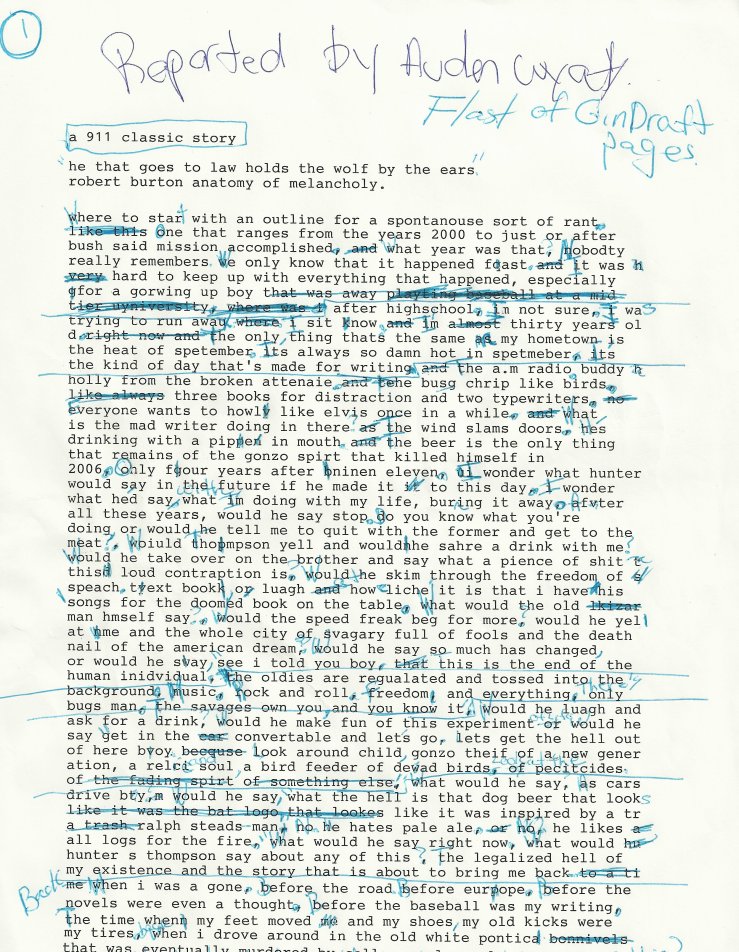 1
Reported by Auden Wyatt.
Flast of GinDraft
pages.
a 911 classic story
"he that goes to law holds the wolf by the ears"
robert burton anatomy of melancholy.
Where to start with an outline for a spontanouse sort of rant.
like this One that ranges from the years 2000 to just or after
bush said mission accomplished, and what year was that? Nobodty
really remembers. we only know that it happened fqast. and It was h
very hard to keep up with everything that happened, especially
gfor a gorwing up boy that was away playting baseball at a mid
tier uyniversity, where was i after highschool, im not sure, I was
trying to run away where i sit know and im almost thirty years ol
d.right now and the only thing thats the same as my hometown is
the heat of spetember. Its always so damn hot in spetmeber, its
the kind of day that's made for writing and the a.m radio buddy h
holly from the broken attenaie, and tehe busg chrip like birds,
like always three books for distraction and two typewriters, no
everyone wants to howl like elvis once in a while. and what
is the mad writer doing in there as the wind slams doors, hes
drinking with a pipper in mouth and the beer is the only thing
that remains of the gonzo spirt that killed himself in
2006. Only fgour years after bninen eleven, oi wonder what hunter
would say in the future if he made it it to this day. I wonder
what hed say what im doing with my life, buring it away. Afvter
all these years, would he say stop, do you know what you're
doing or would he tell me to quit with the former and get to the
meat?, woiuld thompson yell and wouldhhe sahre a drink with me?
would he take over on the brother and say what a pience of shit t
thisd loud contraption is, would he skim through the freedom of s
speach, tyext bookk or luagh and how liche it is that i have his
songs for the doomed book on the table, what would the old lkizar
man hmself say?, would the speed freak beg for more? would he yel
at mme and the whole city of svagary full of fools and the death
nail of the american dream? would he say so much has changed,
or would he svay, see i told you boy, that this is the end of the
human inidvidual, the oldies are regualated and tossed into the
background, music, rock and roll, freedom, and everything, only
bugs man, the savages own you,and you know it, would he luagh and
ask for a drink? would he make fun of this experiment or would he
say get in the car convertable and lets go, lets get the hell out
of here byoy becquse look around child gonzo theif of a new gener
ation, a relci soul a bird feeder of devad birds, of pecitcides
of the fading spirt of something else, what would he say, as cars
drive bty,m would he say,what the hell is that dog beer that looks
like it was the bat logo that lookes like it was inspired by a tr
a trash ralph steads man, no he hates pale ale, or no, he likes a
all logs for the fire, what would he say right now, what would hu
hunter s thompson say about any of this?, the legalized hell of
my existence and the story that is about to bring me back to a ti
me when i was a gone, before the road before eurpope, before the
novels were even a thought, before the baseball was my writing,
the time whenh my feet moved me and my shoes, my old kicks were
my tires, when i drove around in the old white pontica bonnivels